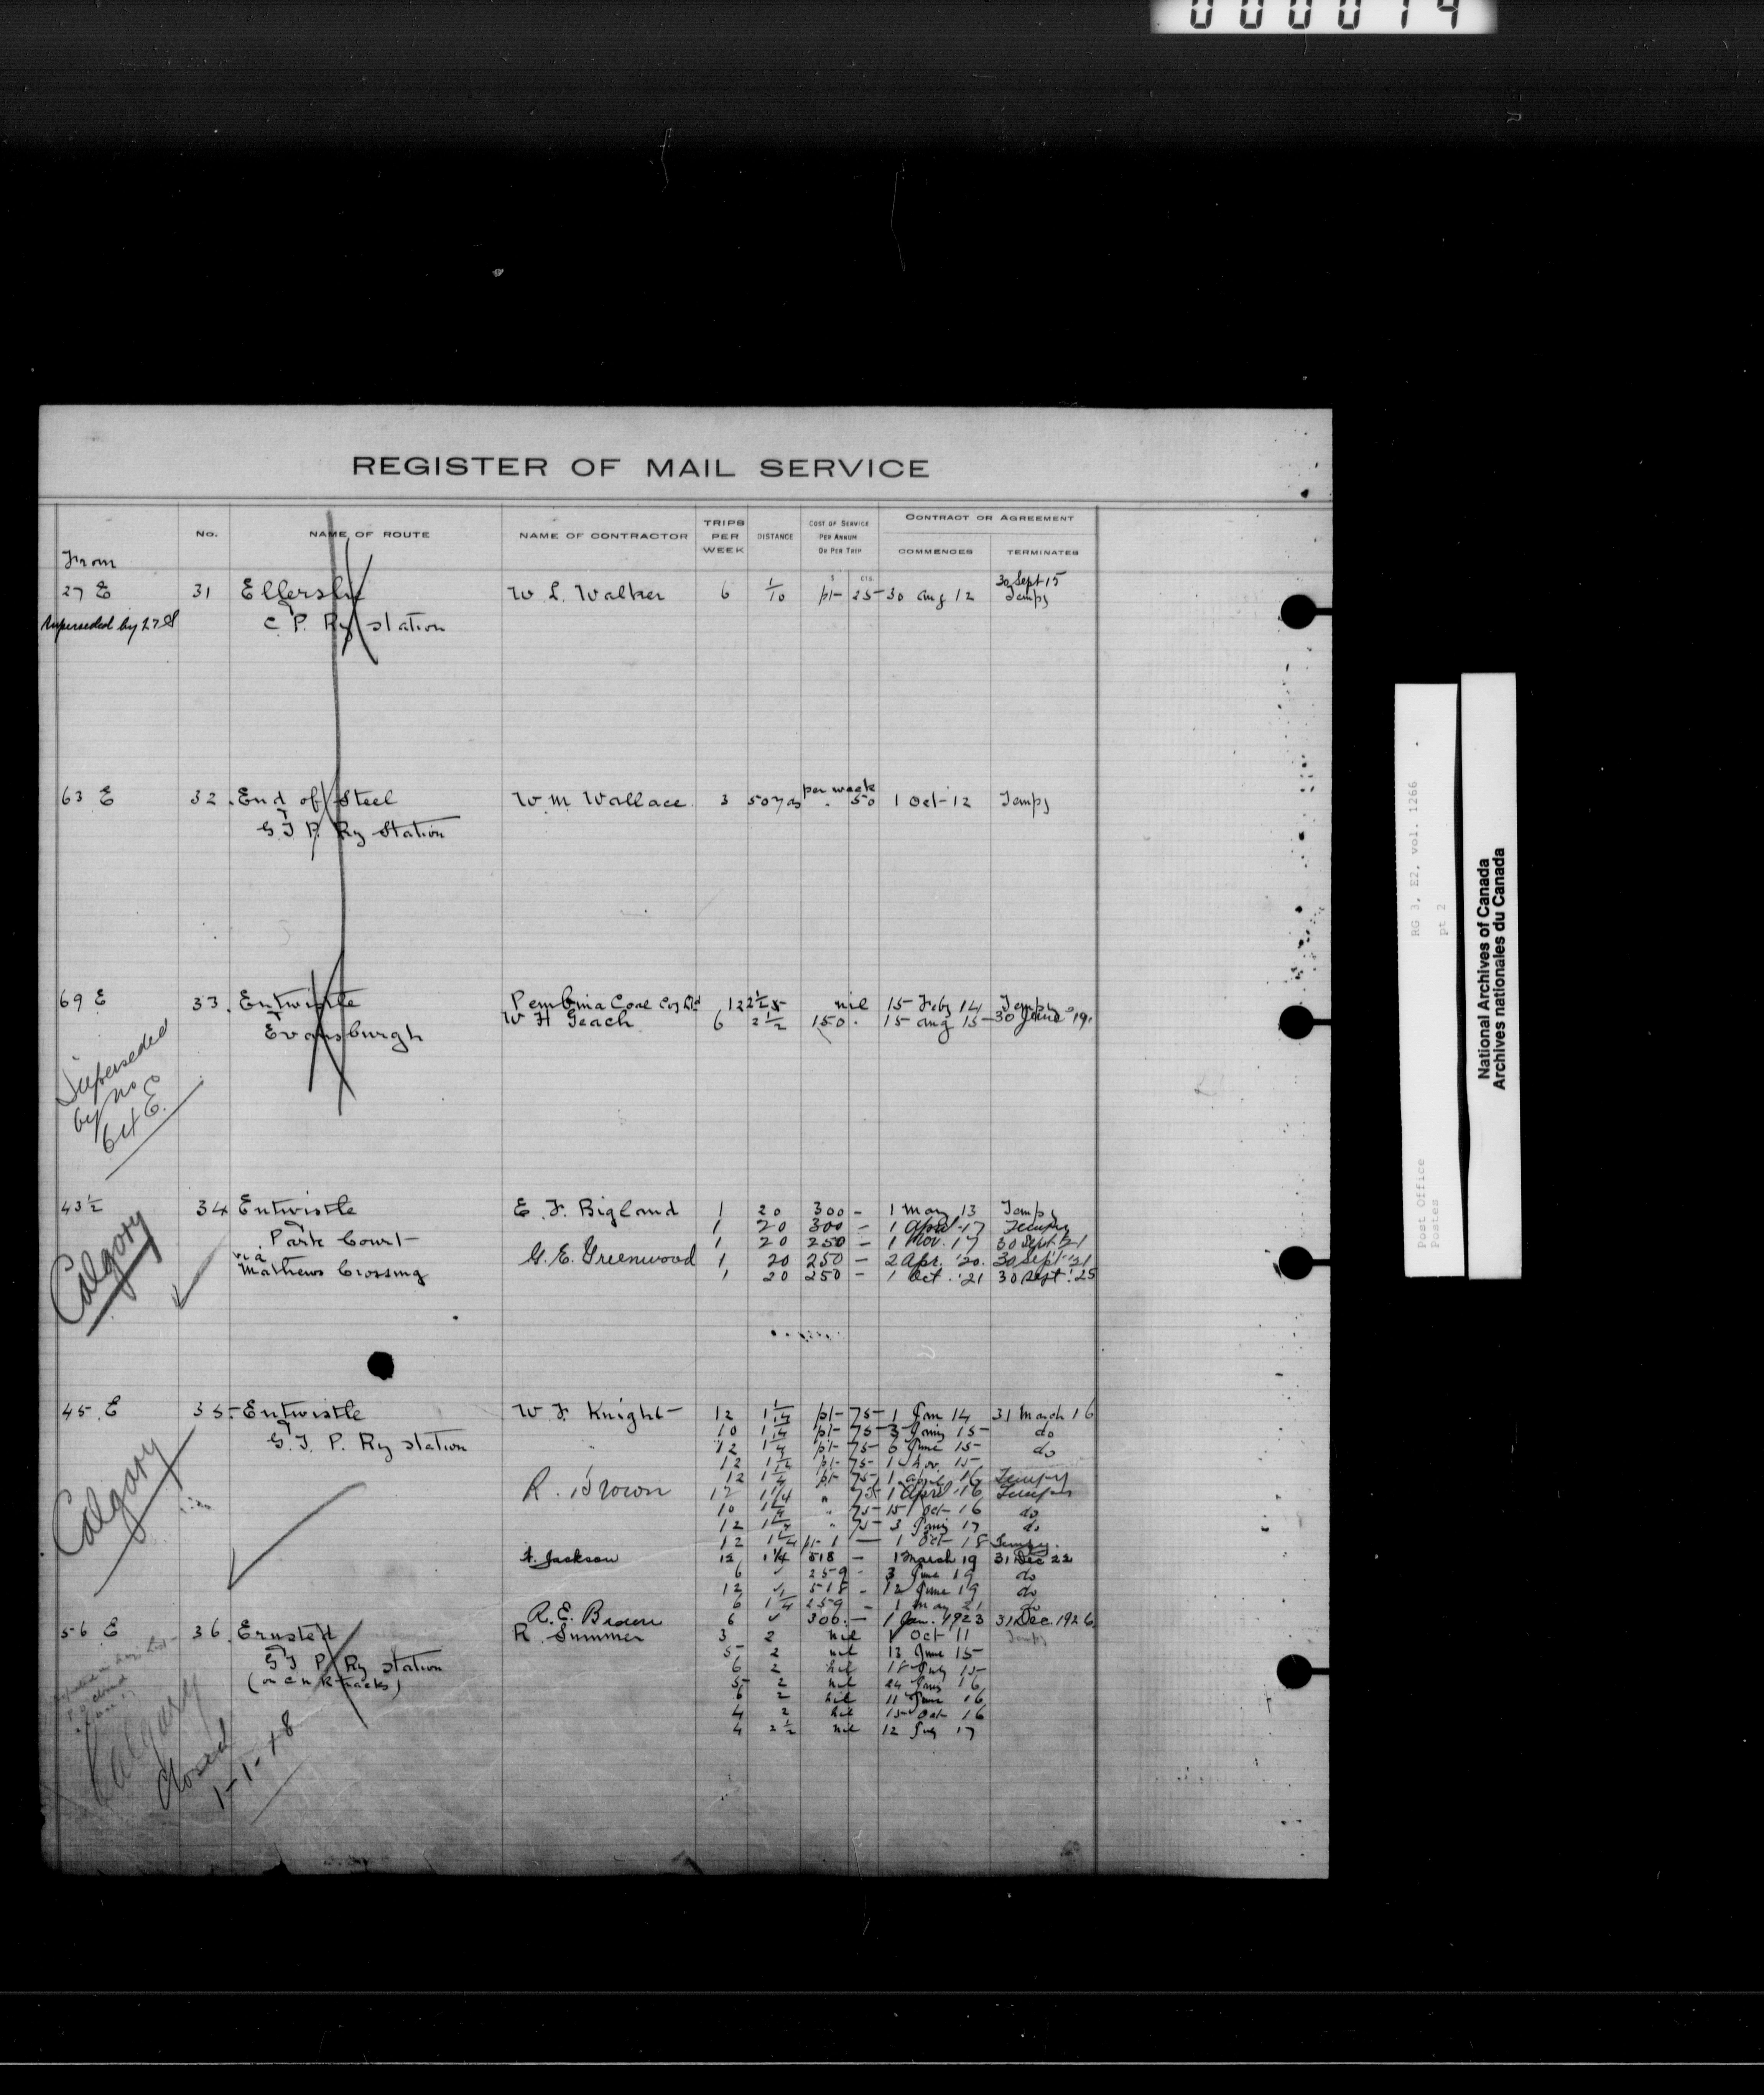 000014
REGISTER OF MAIL SERVICE
From No. NAME OF ROUTE NAME OF CONTRACTOR TRIPS PER WEEK DISTANCE COST OF SERVICE PER ANNUM OR PER TRIP CONTRACT OR AGREEMENT COMMENCES TERMINATES
$ CTS.
30 Sept 15
27 E 31 Ellerslie W. L. Walker 6 1/10 pt 25 30 Aug 12 Tempy
Superseded by 27 S & C. P. Ry station
per week
63 E 32. End of Steel W. M. Wallace. 3 50 yds " 50 1 Oct 12 Tempy
& G T P. Ry Station
69 E 33. Entwistle Pembina Coal Coy Ltd 12 2 1/2 nil 15 Feby 14 Tempy
& Evansburgh W H Geach 6 2 1/2 150. 15 Aug 15 30 June '19.
Superseded
by No
64 E.
43 1/2 34 Entwistle E. F. Bigland 1 20 300 - 1 May 13 Tempy
& 1 20 300 - 1 April 17 Tempy
Park Court 1 20 250 - 1 Nov. 17 30 Sept 21
via G. E. Greenwood 1 20 250 - 2 Apr. '20. 30 Sept '21
Mathews Crossing 1 20 250 - 1 Oct. '21 30 Sept. '25
Calgary
45. E 35. Entwistle W. F. Knight 12 1 1/4 pt 75 1 Jan 14 31 March 16
& 10 1 1/4 pt 75 3 Jany 15 do
G. T. P. Ry station " 12 1 1/4 pt 75 6 June 15 do
12 1 1/4 pt 75 1 Nov. 15
12 1 1/4 pt 75 1 April 16 Tempy
R. Brown 12 1 1/4 " 75 1 April 16 Tempy
10 1 1/4 " 75 15 Oct 16 do
12 1 1/4 " 75 3 Jany 17 do
12 1 1/4 pt 1 — 1 Oct 18 Tempy.
Jackson 12 1 1/4 518 - 1 March 19 31 Dec 22
6 ✓ 259 - 3 June 19 do
12 ✓ 518 - 12 June 19 do
6 1 1/4 259 - 1 May 21 do
R. E. Brown 6 ✓ 300. — 1 Jan. 1923 31 Dec. 1926.
Calgary
56 E 36. Ernsted R. Summer 3 2 nil 1 Oct 11 Tempy
& 5 2 nil 13 June 15
G T P Ry station 6 2 nil 15 July 15
(on C N R tracks) 5 2 nil 24 Jany 16
6 2 nil 11 June 16
4 2 nil 15 Oct 16
4 2 1/2 nil 12 July 17
Calgary
Closed
1-1-18
RG 3, E2, vol. 1266
pt 2
Post Office
Postes
National Archives of Canada
Archives nationales du Canada